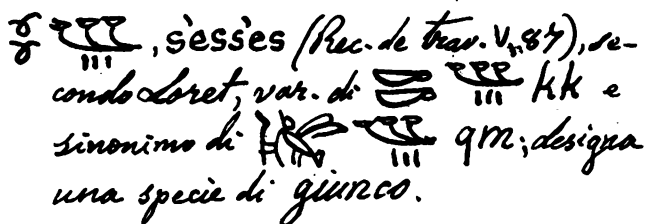 , s̀ess̀es (Rec. de trav. V, 87), se-
condo Loret, var. di kk e
sinonimo di qm; designa
una specie di giunco.